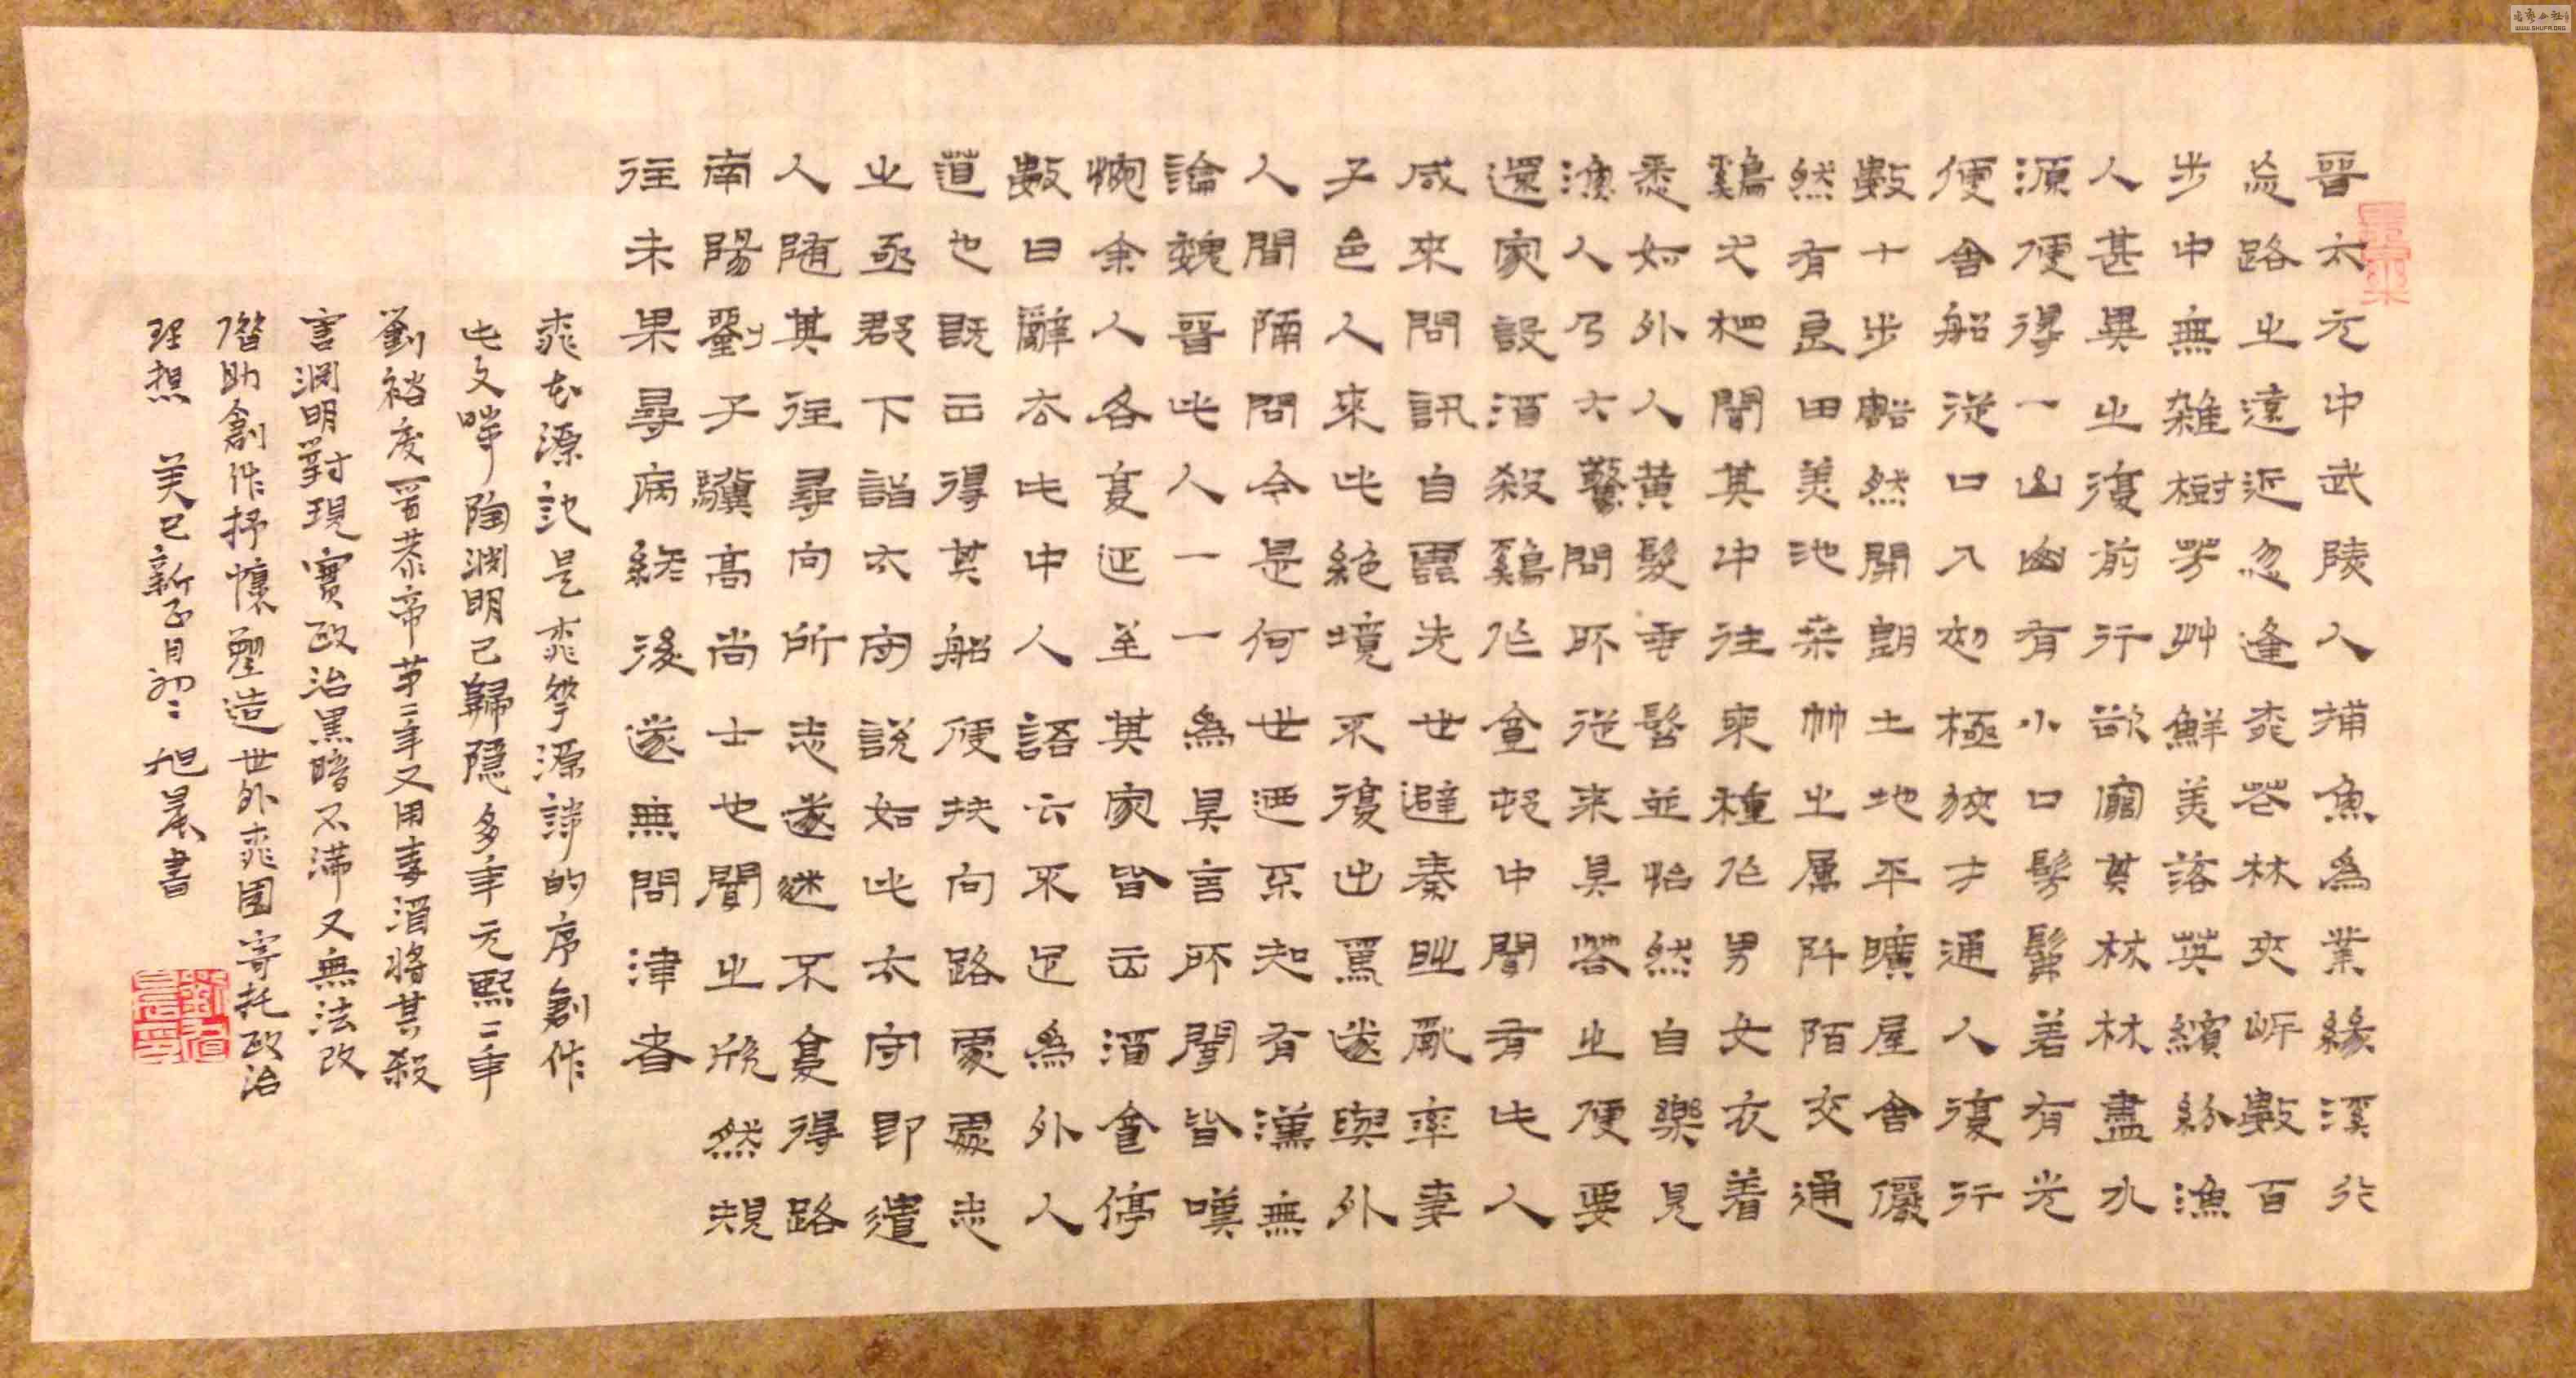 晉太元中武陵人捕魚為業緣溪行
忘路之遠近忽逢桃花林夾岸數百
步中無雜樹芳艸鮮美落英繽紛漁
人甚異之復前行欲窮其林林盡水
源便得一山山有小口髣髴若有光
便舍船從口入初極狹才通人復行
數十步豁然開朗土地平曠屋舍儼
然有良田美池桑竹之属阡陌交通
鷄犬相聞其中往來種作男女衣着
悉如外人黄髮垂髫並怡然自樂見
漁人乃大驚問所從來具答之便要
還家設酒殺鷄作食村中聞有此人
咸來問訊自云先世避秦時亂率妻
子邑人來此絶境不復出焉遂與外
人間隔問今是何世迺不知有漢無
論魏晉此人一一為具言所聞皆嘆
惋余人各复延至其家皆出酒食停
數日辭去此中人語云不足為外人
道也既出得其船便扶向路處處志
之及郡下詣太守說如此太守即遣
人随其往尋向所志遂迷不复得路
南陽劉子驥高尚士也聞之欣然規
往未果尋病終後遂無問津者
桃花源記是桃花源詩的序創作
此文時陶淵明已歸隱多年元熙二年
劉裕废晋恭帝第二年又用毒酒將其殺
害淵明對現實政治黑暗不滿又無法改
借助創作抒懷塑造世外桃園寄托政治
理想 癸巳新正月初二 旭晨書
WWW.SHUFA.ORG